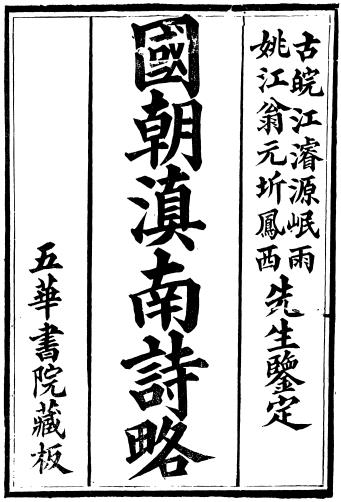 古皖江濬源岷雨
姚江翁元圻鳳西
先生鑒定
國朝滇南詩略
五華書院藏板